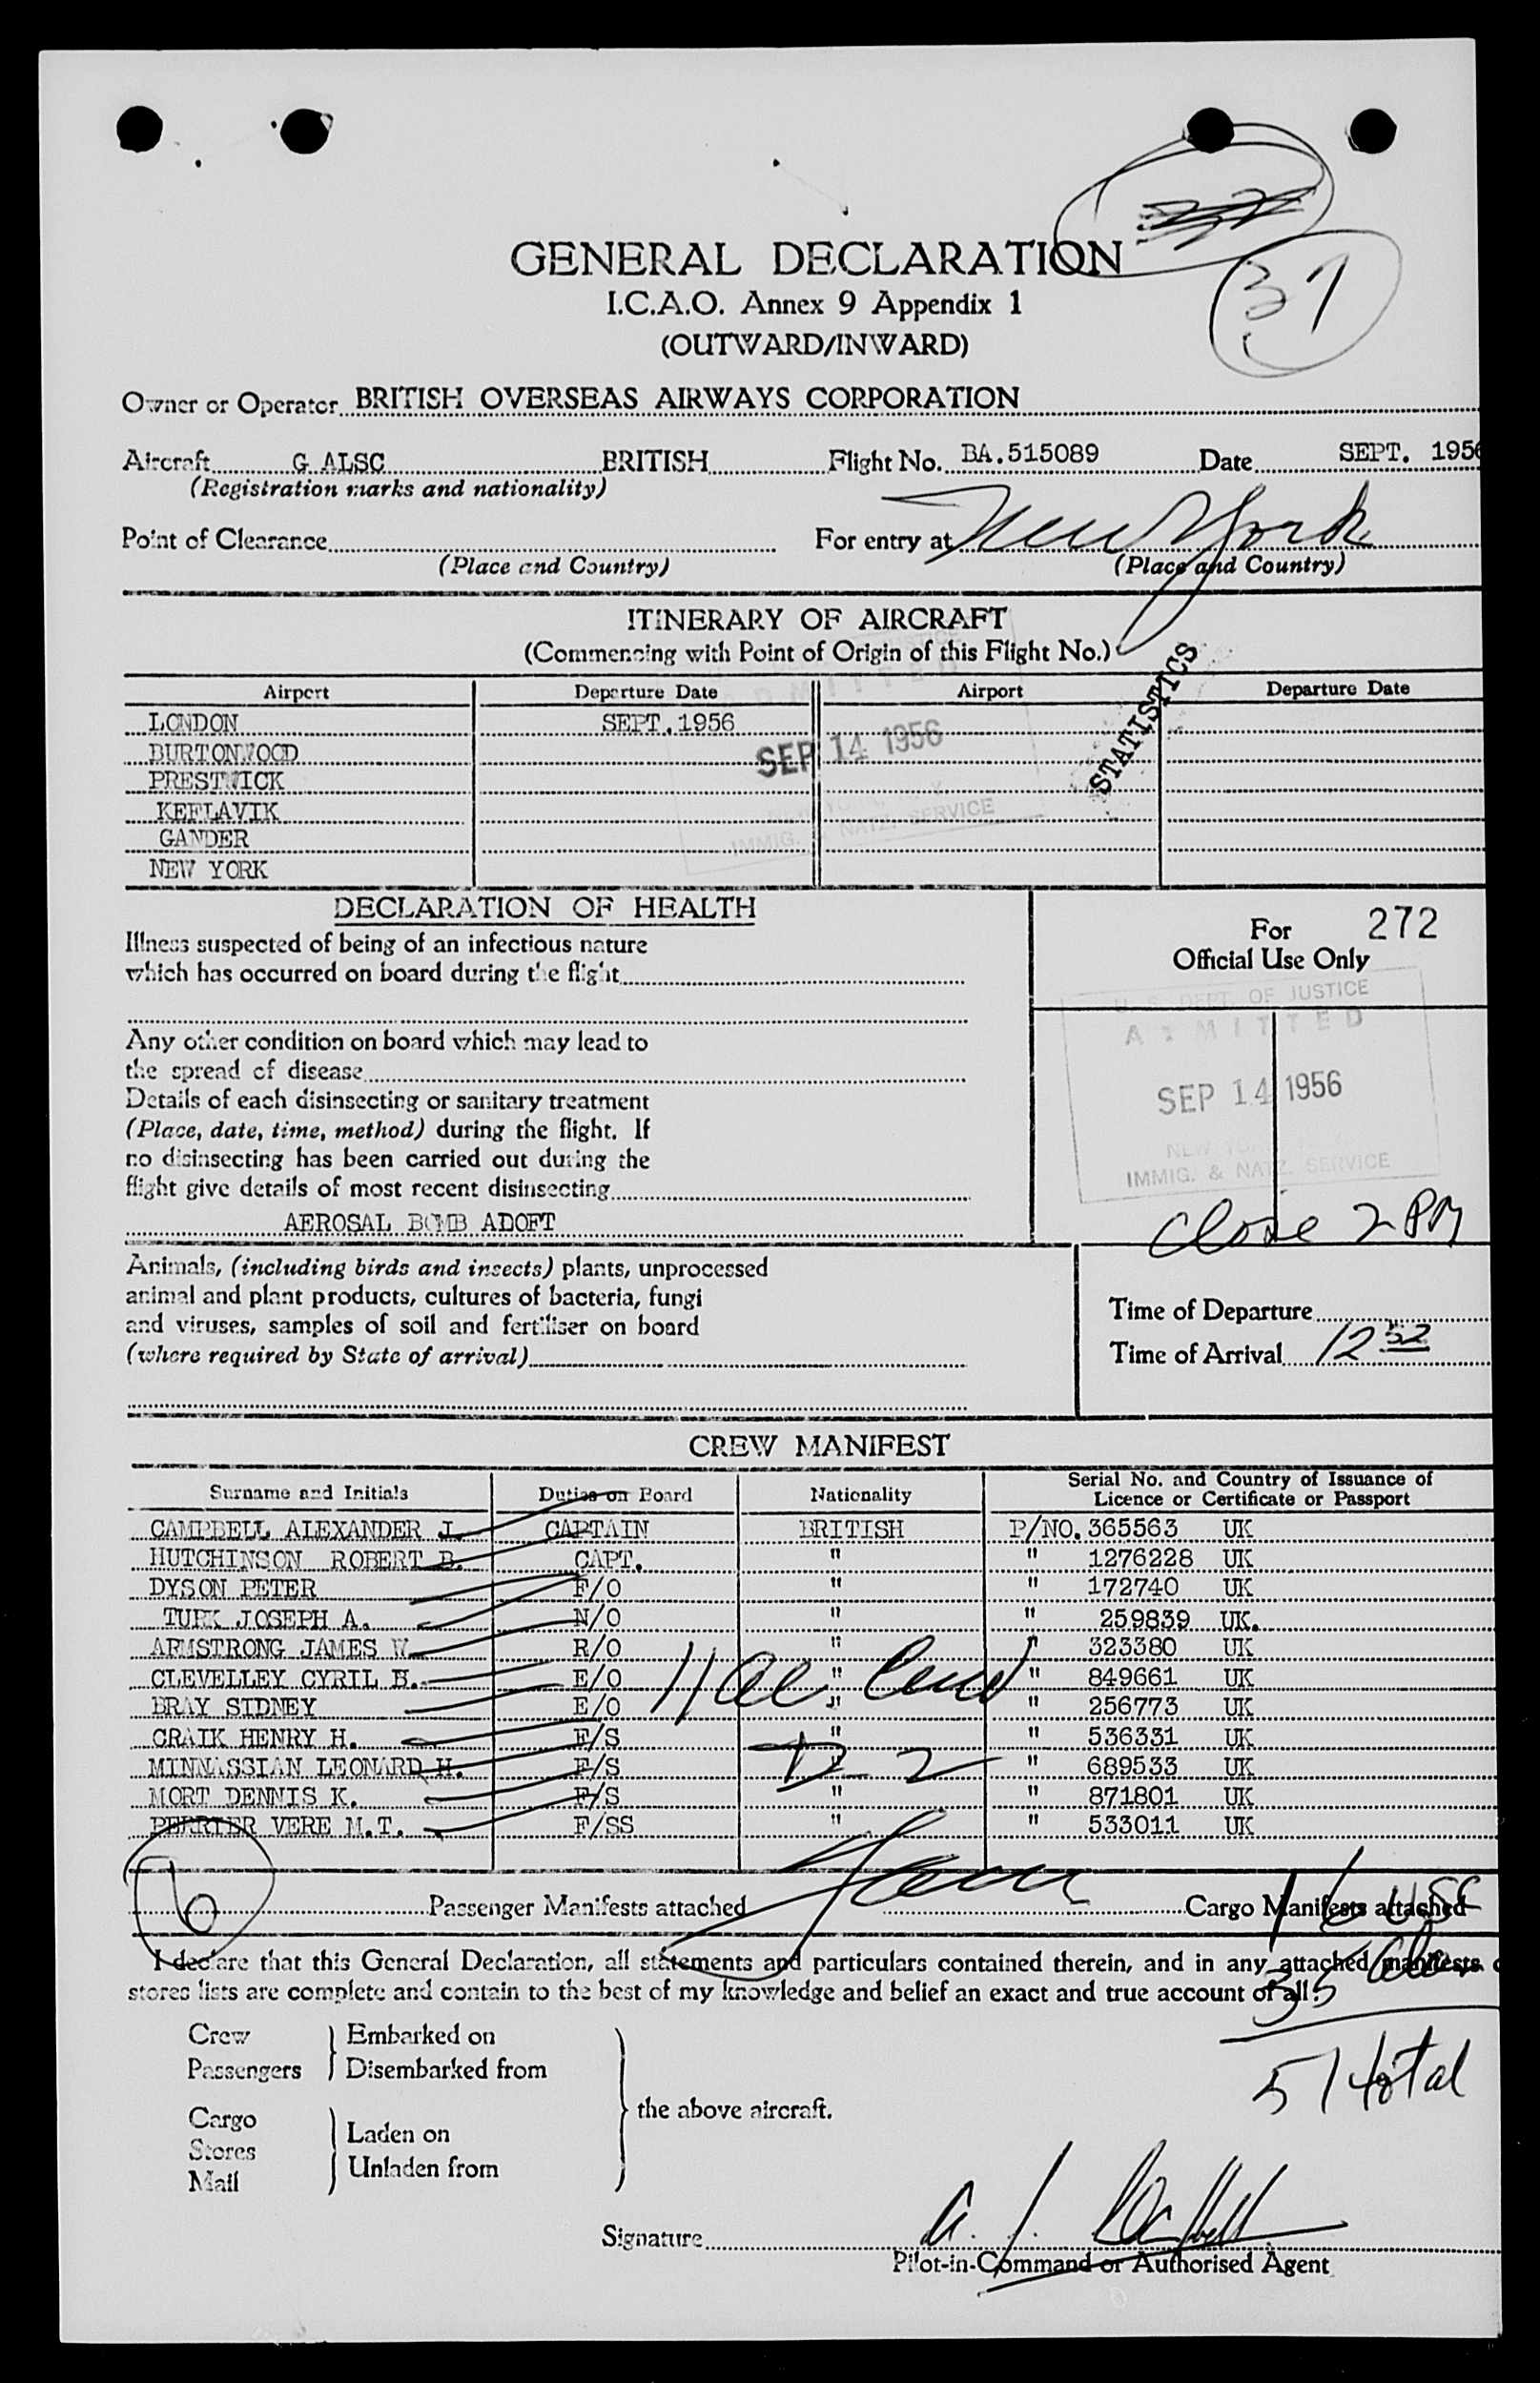 37
GENERAL DECLARATION
I.C.A.O. Annex 9 Appendix 1
(OUTWARD/INWARD)
Owner or Operator BRITISH OVERSEAS AIRWAYS CORPORATION
Aircraft G ALSC BRITISH Flight No. BA.515089 Date SEPT. 1956
(Registration marks and nationality)
Point of Clearance For entry at New York
(Place and Country) (Place and Country)
ITINERARY OF AIRCRAFT
(Commencing with Point of Origin of this Flight No.)
STATISTICS
Airport Departure Date Airport Departure Date
LONDON SEPT.1956
BURTONWOOD
PRESTWICK
KEFLAVIK
GANDER
NEW YORK
ADMITTED
SEP 14 1956
IMMIG. & NATZ. SERVICE
DECLARATION OF HEALTH
Illness suspected of being of an infectious nature
which has occurred on board during the flight
Any other condition on board which may lead to
the spread of disease
Details of each disinsecting or sanitary treatment
(Place, date, time, method) during the flight. If
no disinsecting has been carried out during the
flight give details of most recent disinsecting
AEROSAL BOMB ADOFT
For 272
Official Use Only
U. S. DEPT. OF JUSTICE
ADMITTED
SEP 14 1956
NEW YORK
IMMIG. & NATZ. SERVICE
Close 2 PM
Animals, (including birds and insects) plants, unprocessed
animal and plant products, cultures of bacteria, fungi
and viruses, samples of soil and fertiliser on board
(where required by State of arrival)
Time of Departure
Time of Arrival 12 52
CREW MANIFEST
Surname and Initials Duties on Board Nationality Serial No. and Country of Issuance of
Licence or Certificate or Passport
CAMPBELL ALEXANDER J. CAPTAIN BRITISH P/NO. 365563 UK
HUTCHINSON ROBERT B. CAPT. " " 1276228 UK
DYSON PETER F/O " " 172740 UK
TURK JOSEPH A. N/O " " 259839 UK.
ARMSTRONG JAMES W. R/O " " 323380 UK
CLEVELLEY CYRIL B. E/O " " 849661 UK
BRAY SIDNEY E/O " " 256773 UK
CRAIK HENRY H. F/S " " 536331 UK
MINNASSIAN LEONARD H. F/S " " 689533 UK
MORT DENNIS K. F/S " " 871801 UK
PERRIER VERE M.T. F/SS " " 533011 UK
D 2
6
Passenger Manifests attached Cargo Manifests attached
16 USC
35 Alien
51 total
I declare that this General Declaration, all statements and particulars contained therein, and in any attached manifests
stores lists are complete and contain to the best of my knowledge and belief an exact and true account of all
Crew Embarked on
Passengers Disembarked from
the above aircraft.
Cargo Laden on
Stores
Mail Unladen from
Signature A. J. Campbell
Pilot-in-Command or Authorised Agent